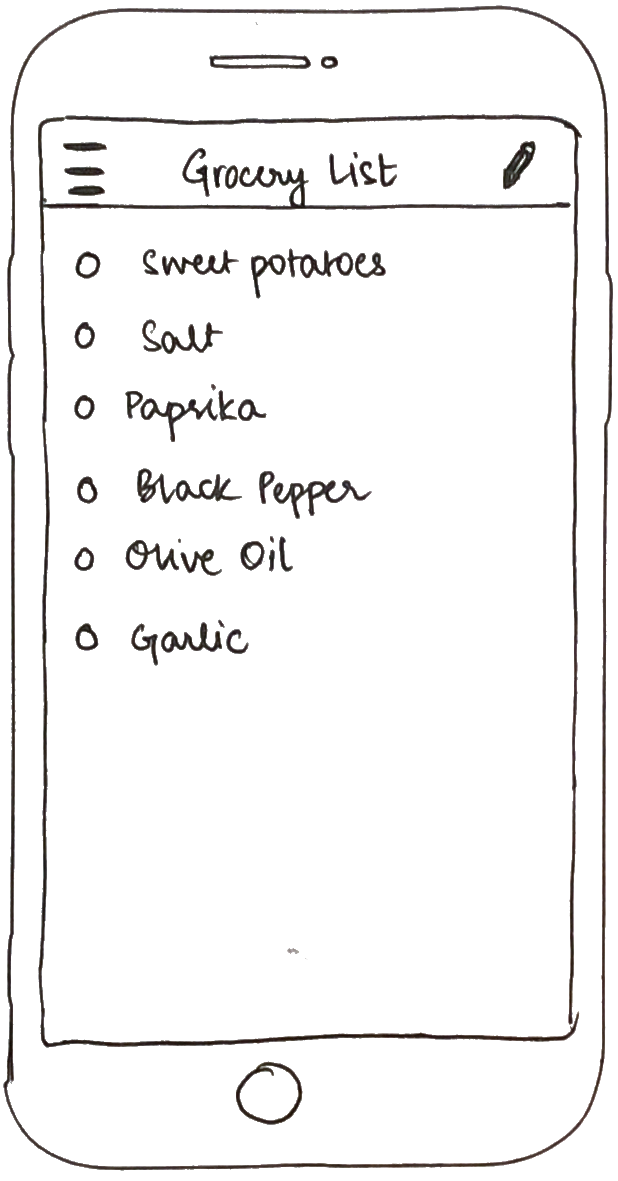 Grocery List
Sweet potatoes
Salt
Paprika
Black Pepper
Olive Oil
Garlic